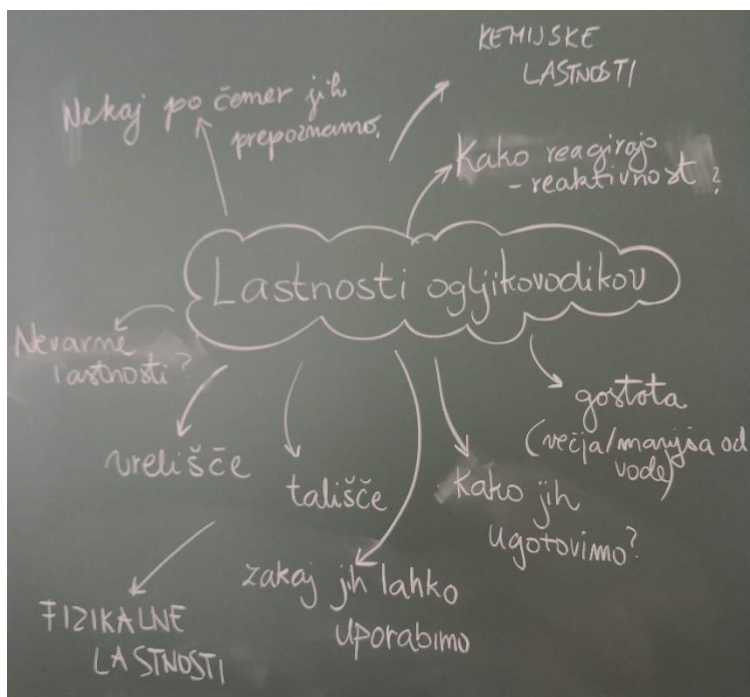 KEMIJSKE
LASTNOSTI
Nekaj po čemer jih
prepoznamo.
Kako reagirajo
- reaktivnost?
Lastnosti ogljikovodikov
Nevarne
lastnosti?
vrelišče
tališče
gostota
(večja/manjša od
vode)
Kako jih
ugotovimo?
zakaj jih lahko
uporabimo
FIZIKALNE
LASTNOSTI